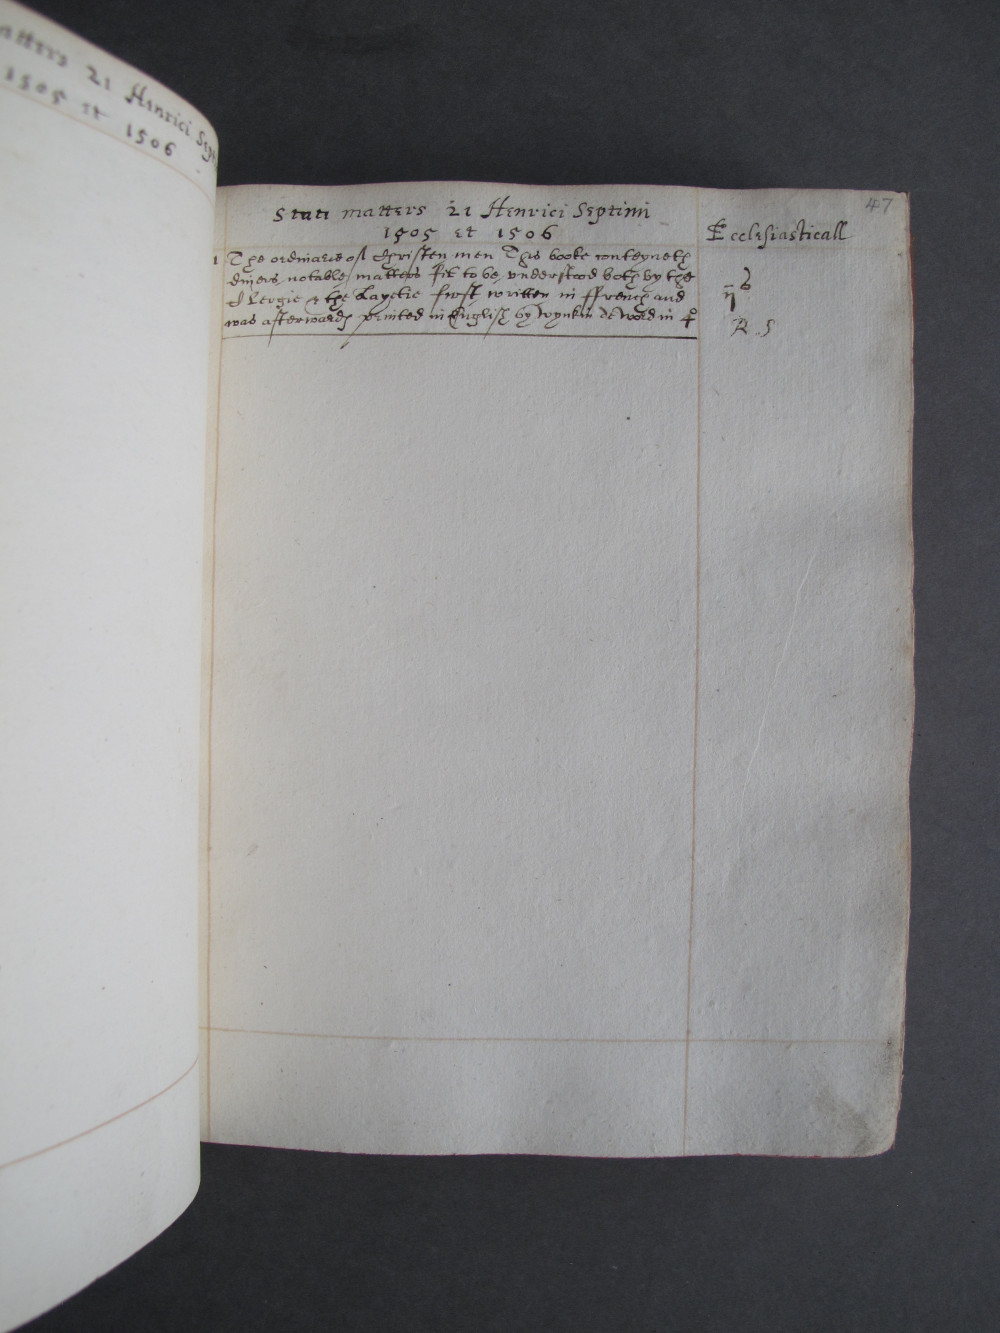 atters 21 Henrici Sept
1505 et 1506
47
State matters 21 Henrici Septimi
1505 et 1506
Ecclesiasticall
1 The ordinarie of Christen men This booke conteyneth
diuers notable matters fit to be vnderstood both by the
Clergie & the Layetie first written in ffrench and
was afterwards printed in English by Wynkin de Word in 4o
b
ij
R. 5